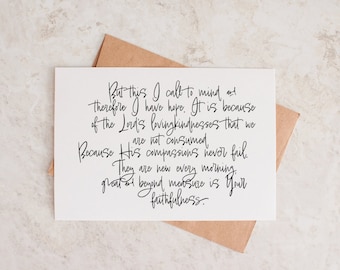 But this I call to mind &
therefore I have hope. It is because
of the Lord's lovingkindnesses that we
are not consumed
Because His compassions never fail.
They are new every morning,
great & beyond measure is Your
faithfulness.